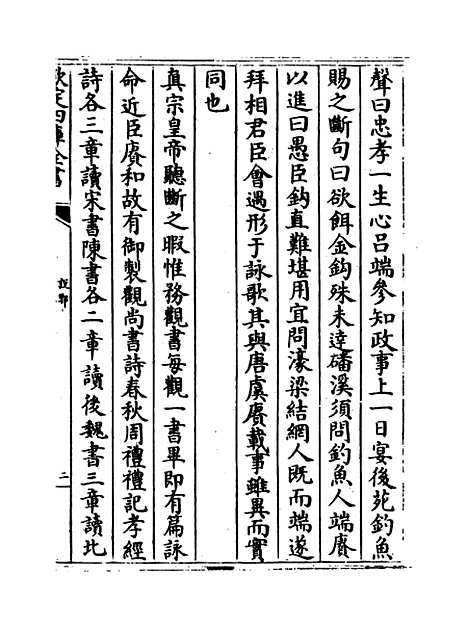 聲曰忠孝一生心呂端參知政事上一日宴後苑釣魚
賜之斷句曰欲餌金鈎殊未達磻溪須問釣魚人端賡
以進曰愚臣鈎直難堪用宜問濠梁結網人既而端遂
拜相君臣會遇形于詠歌其與唐虞賡載事雖異而實
同也
真宗皇帝聽斷之暇惟務觀書每觀一書畢即有篇詠
命近臣賡和故有御製觀尚書詩春秋周禮禮記孝經
詩各三章讀宋書陳書各二章讀後魏書三章讀北
欽定四庫全書
說郛
二